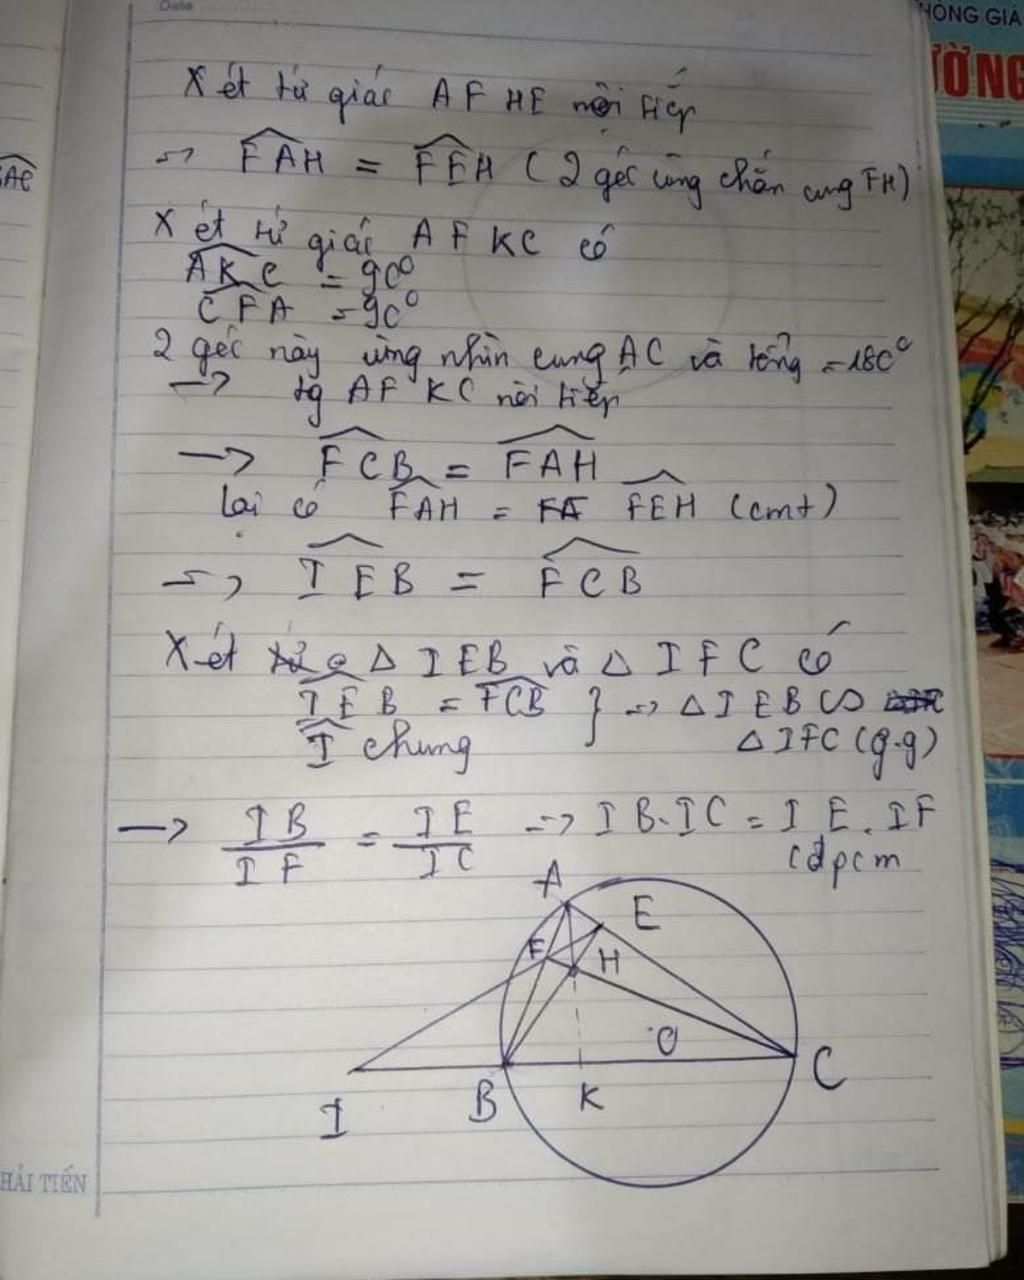 Date
HÒNG GIÁ
ƯỜNG
Xét tứ giác AFHE nội tiếp
=> FAH = FEH (2 góc cùng chắn cung FH)
Xét tứ giác AFKC có
AKC = 90°
CFA = 90°
2 góc này cùng nhìn cung AC và tổng = 180°
-> tg AFKC nội tiếp
-> FCB = FAH
Lại có FAH = FEH (cmt)
=> IEB = FCB
Xét Δ IEB và Δ IFC có
IEB = FCB } => Δ IEB ∽
I chung Δ IFC (g.g)
-> IB/IF = IE/IC => IB.IC = IE.IF
(đpcm
A
E
F
H
O
C
B
K
I
HẢI TIẾN